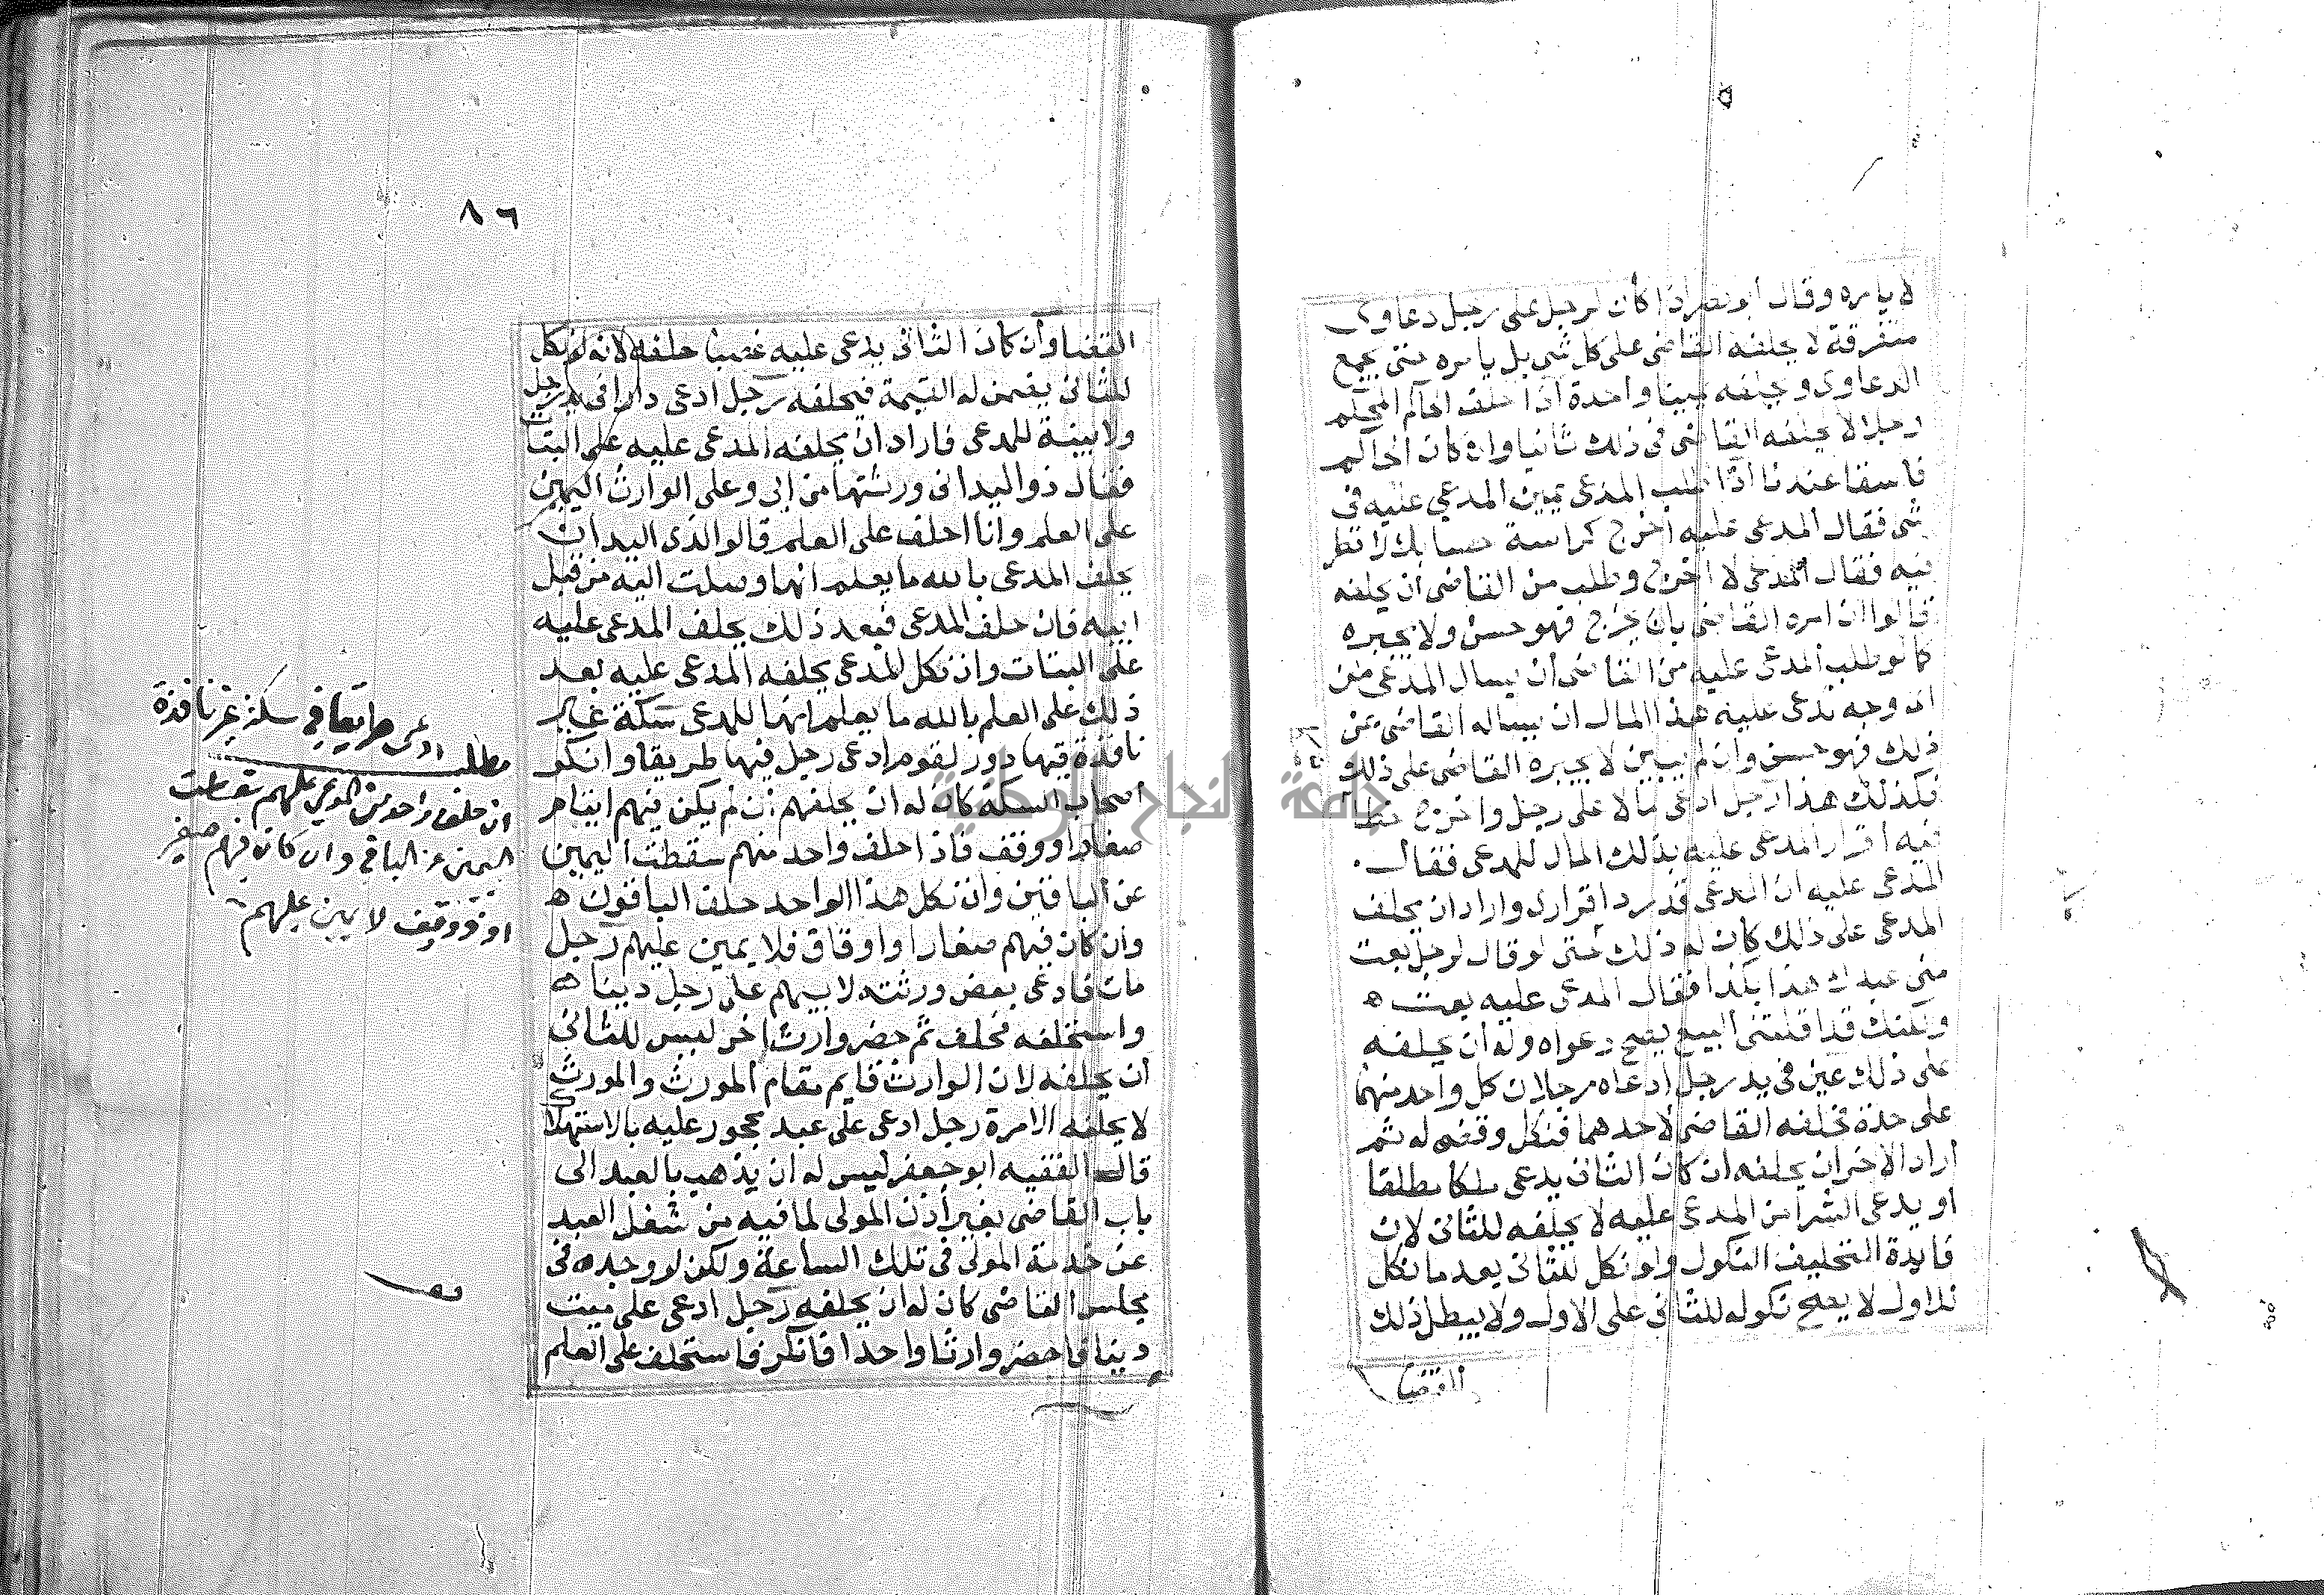 لا يامره وقال ابو نصر اذا كان لرجل على رجل دعاوى
متفرقة لا يحلفه القاضى على كل شى بل يامره حتى يجمع
الدعاوى ويحلفه يمينا واحدة اذا حلف الحاكم المحكم
رجلا لا يحلفه القاضى فى ذلك ثانيا وان كان الحاكم
فاسقا عندنا اذا طلب المدعى يمين المدعى عليه فى
شى فقال المدعى عليه اخرج كراسة حسابك لانظر
فيه فقال المدعى لا اخرج وطلب من القاضى ان يحلفه
قالوا ان امره القاضى بان يخرج فهو حسن ولا يجبره
كما لو طلب المدعى عليه من القاضى ان يسال المدعى من
اى وجه تدعى عليه هذا المال ان يساله القاضى عن
ذلك فهو حسن وان لم يبين لا يجبره القاضى على ذلك
فكذلك هذا رجل ادعى مالا على رجل واخرج خطا
فيه اقرار المدعى عليه بذلك المال للمدعى فقال
المدعى عليه ان المدعى قد رد اقرارى واراد ان يحلف
المدعى على ذلك كان له ذلك حتى لو قال لرجل بعت
منى عبدك هذا بكذا فقال المدعى عليه بعت ه
ولكنك قد اقلتنى البيع يصح دعواه وله ان يحلفه
على ذلك عين فى يد رجل ادعاه رجلان كل واحد منهما
على حدة فحلفه القاضى لاحدهما فنكل وقضى له ثم
اراد الاخر ان يحلفه ان كان الثانى يدعى ملكا مطلقا
او يدعى الشرا من المدعى عليه لا يحلفه للثانى لان
فايدة التحليف النكول ولو نكل للثانى بعد ما نكل
للاول لا يصح نكوله للثانى على الاول ولا يبطل ذلك
القضا
٨٦
القضا وان كان الثانى يدعى عليه غصبا حلفه لانه لو نكل
للثانى يضمن له القيمة فيحلفه رجل ادعى دارا فى يد رجل
ولا بينة للمدعى فاراد ان يحلفه المدعى عليه على البتات
فقال ذو اليد انى ورثتها من ابى وعلى الوارث اليمين
على العلم وانا احلف على العلم قالوا لذى اليد ان
يحلف المدعى بالله ما يعلم انها وصلت اليه من قبل
ابيه فان حلف المدعى فبعد ذلك يحلف المدعى عليه
على البتات وان نكل المدعى يحلفه المدعى عليه بعد
ذلك على العلم بالله ما يعلم انها للمدعى سكة غير
نافذة فيها دور لقوم ادعى رجل فيها طريقا وانكر
اصحاب السكة كان له ان يحلفهم ان لم يكن فيهم ايضا هر
صغارا ووقف فاذا حلف واحد منهم سقطت اليمين
عن الباقين وان نكل هذا الواحد حلف الباقون ه
وان كان فيهم صغارا واوقاق فلا يمين عليهم رجل
مات فادعى بعض ورثته لابيهم على رجل دينا ه
واستحلفه فحلف ثم حضر وارث اخر ليس للثانى
ان يحلفه لان الوارث قايم مقام المورث والمورث
لا يحلفه الا مرة رجل ادعى على عبد محجور عليه بالاستهلا
قال الفقيه ابو جعفر ليس له ان يذهب بالعبد الى
باب القاضى بغير اذن المولى لما فيه من شغل العبد
عن خدمة المولى فى تلك الساعة ولكن لو وجده فى
مجلس القاضى كان له ان يحلفه رجل ادعى على ميت
دينا فاحضر وارثا واحدا فانكر فاستحلف على العلم
مطلب ادعى طريقا فى سكة غير نافذة
ان حلف واحد من المدعى عليهم سقطت
اليمين عن الباقي وان كان فيهم صغير
او وقف لا يمين عليهم
جامعة النجاح الوطنية